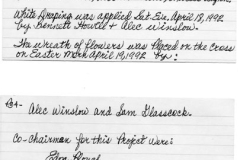 White Draping was applied Sat. Eve, April 18, 1992
by Bennett Howell & Alec Winslow.
The Wreath of flowers was placed on the cross
on Easter Morn April 19, 1992 by:
Alec Winslow and Sam Glasscock.
Co-Chairman for this Project were: